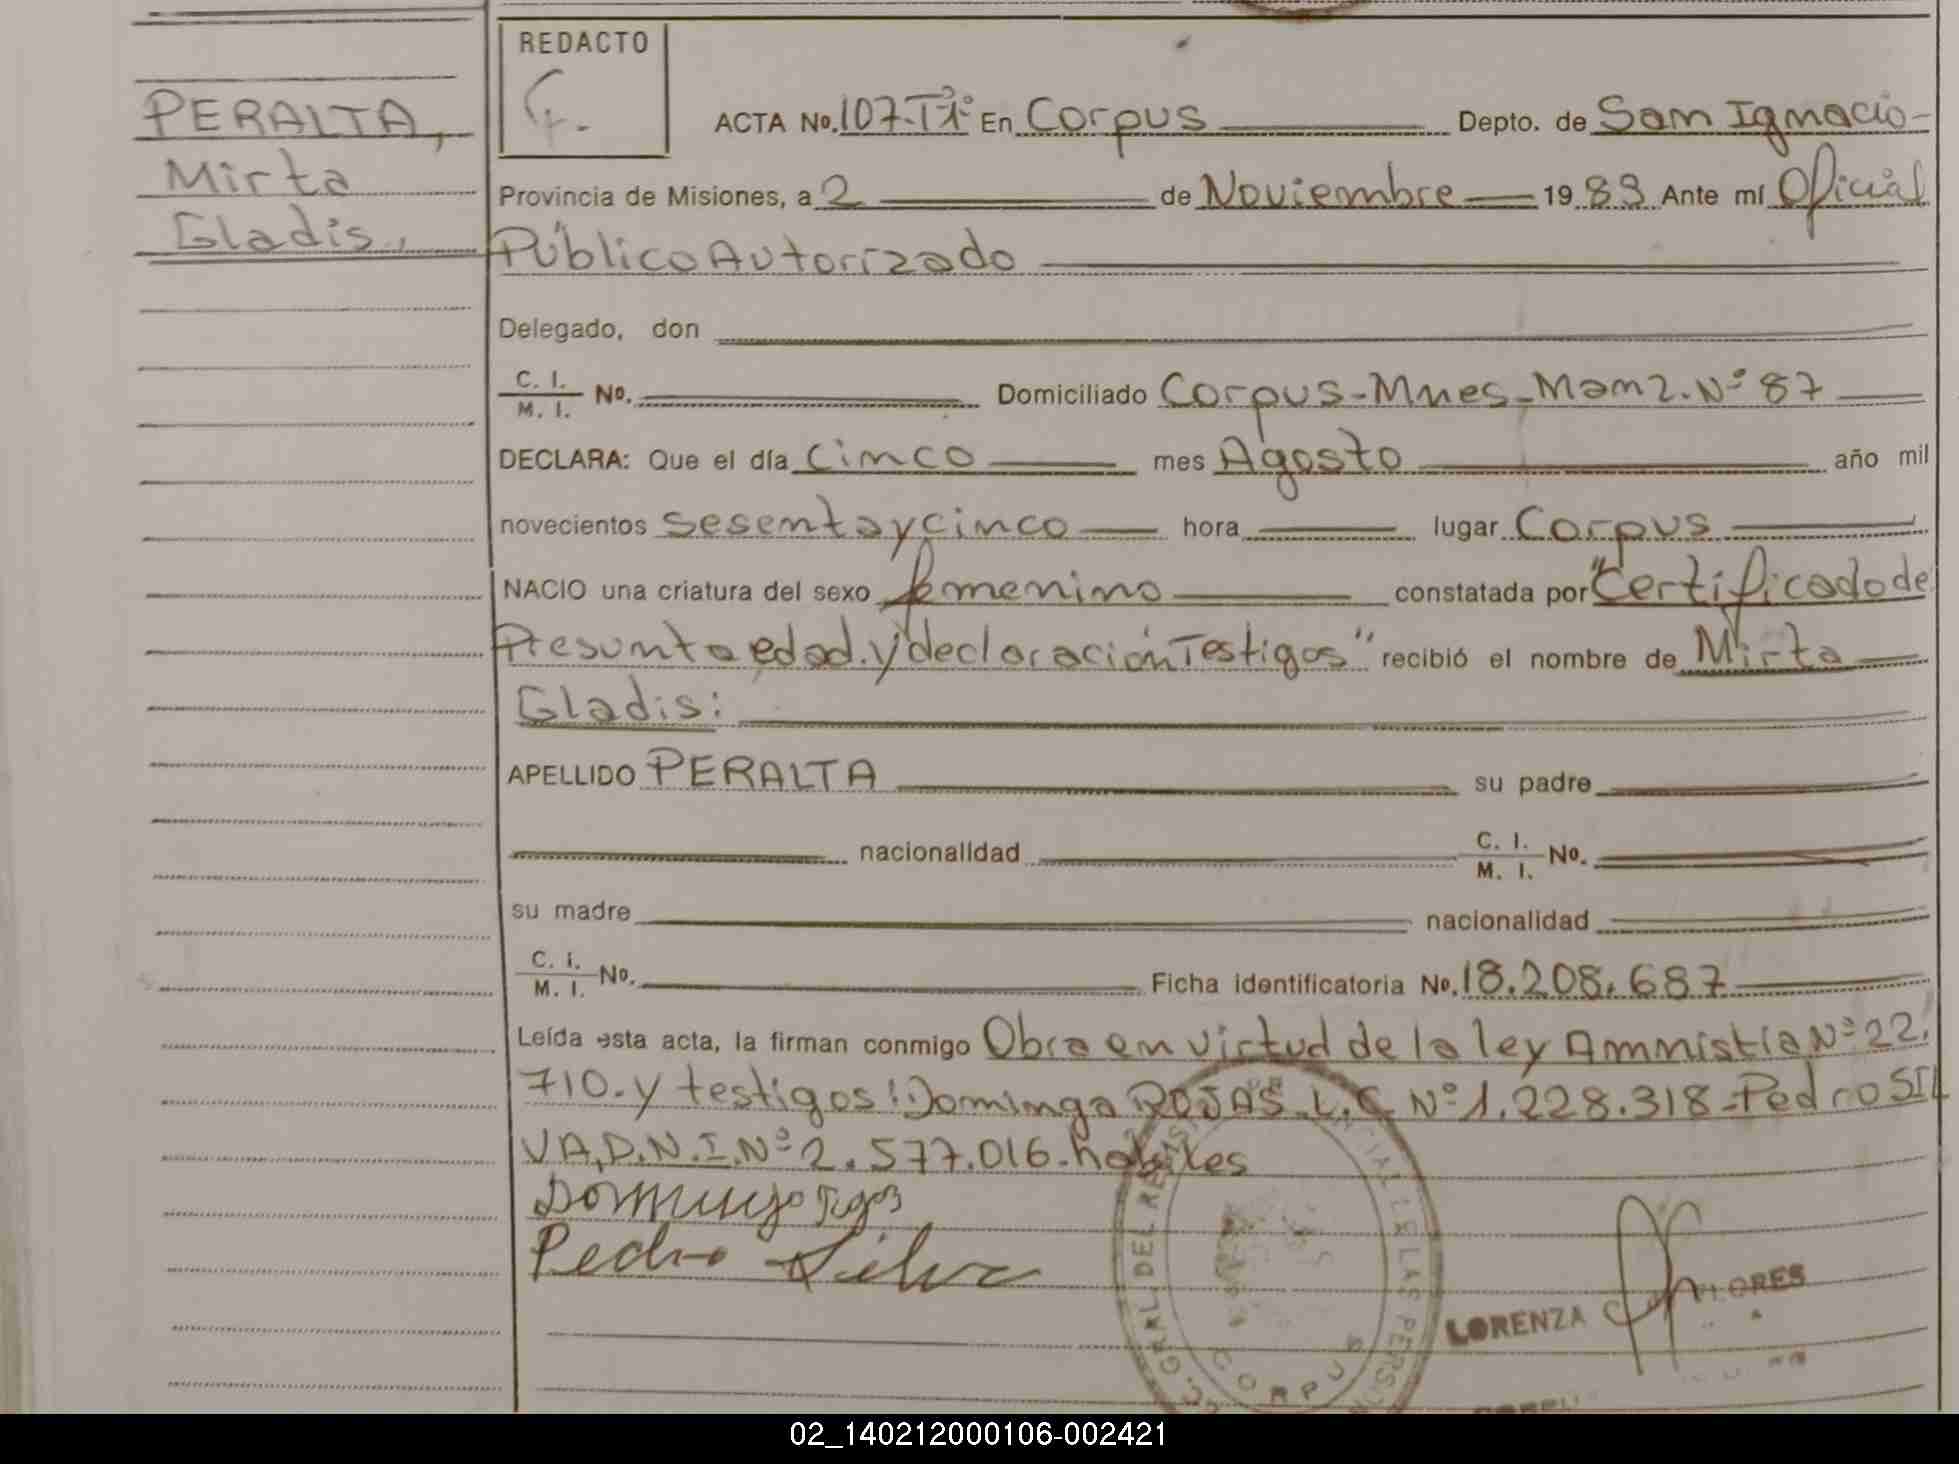 PERALTA,
Mirta
Gladis.
REDACTO
ACTA No. 107-Tº1º En Corpus Depto. de San Ignacio-
Provincia de Misiones, a 2 de Noviembre 1983 Ante mí Oficial
Público Autorizado
Delegado, don
C. I.
M. I. No. Domiciliado Corpus-Mnes-Manz. Nº 87
DECLARA: Que el día cinco mes Agosto año mil
novecientos sesenta y cinco hora lugar Corpus
NACIO una criatura del sexo femenino constatada por "Certificado de
Presunta edad. y declaración Testigos" recibió el nombre de Mirta
Gladis:
APELLIDO PERALTA su padre
nacionalidad C. I.
M. I. No.
su madre nacionalidad
C. I.
M. I. No. Ficha identificatoria No. 18.208.687
Leída esta acta, la firman conmigo Obra en virtud de la ley Amnistía Nº 22.
710. y testigos: Dominga ROJAS. L.C. Nº 1.228.318-Pedro SIL
VA, D.N.I. Nº 2.577.016-habiles
Pedro Silva
GRAL. DEL REGISTRO PROVINCIAL DE LAS PERSON
CORPUS
LORENZA FLORES
02_140212000106-002421